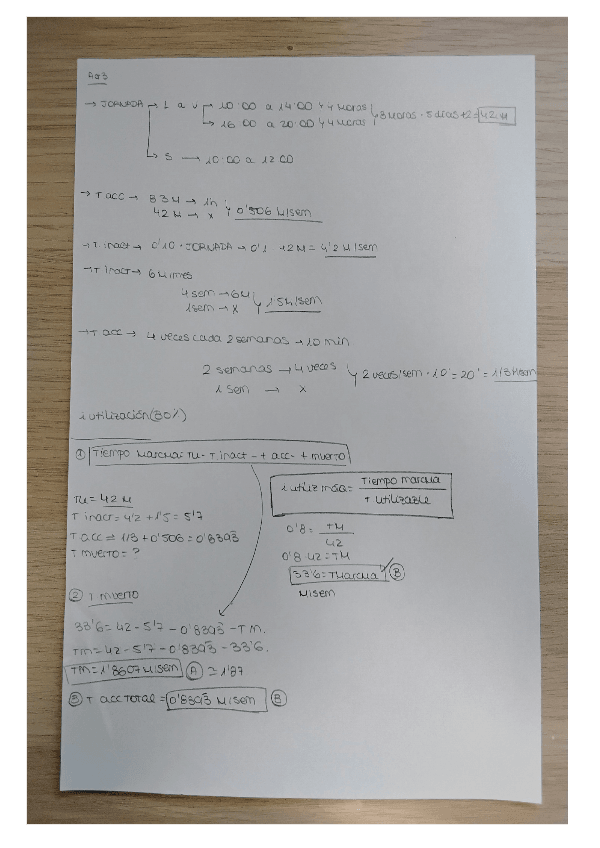 AG3
→ JORNADA → L a V → 10:00 a 14:00 4 horas
→ 16:00 a 20:00 4 horas 8 horas · 5 días + 2 = 42 H
→ S → 10:00 a 12:00
→ T acc → 83 H → 1h
42 H → x 0'506 H/sem
→ T. inact → 0'10 · JORNADA → 0'1 · 42 H = 4'2 H/sem
→ T inact → 6 H/mes
4 sem → 6H
1 sem → x 1'5 h/sem
→ T acc → 4 veces cada 2 semanas → 10 min
2 semanas → 4 veces
1 sem → x 2 veces/sem · 10' = 20' = 1/3 H/sem
utilización (80%)
① Tiempo Marcha = TU - T. inact - t acc - t muerto
TU = 42 H
T inact = 4'2 + 1'5 = 5'7
T acc = 1/3 + 0'506 = 0'8393
T muerto = ?
utiliz máq = Tiempo marcha / T utilizable
0'8 = TM / 42
0'8 · 42 = TM
33'6 = T Marcha B
H/sem
② T muerto
33'6 = 42 - 5'7 - 0'8393 - TM.
TM = 42 - 5'7 - 0'8393 - 33'6.
TM = 1'8607 H/sem A ≅ 1'87
③ T acc TOTAL = 0'8393 H/sem B